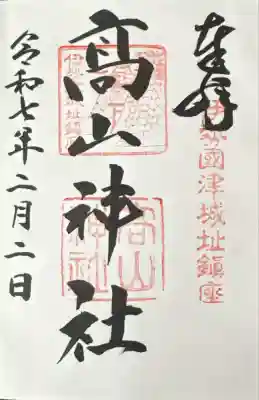 奉拝
伊勢國津城址鎮座
高山神社
高山神社
令和七年二月二日